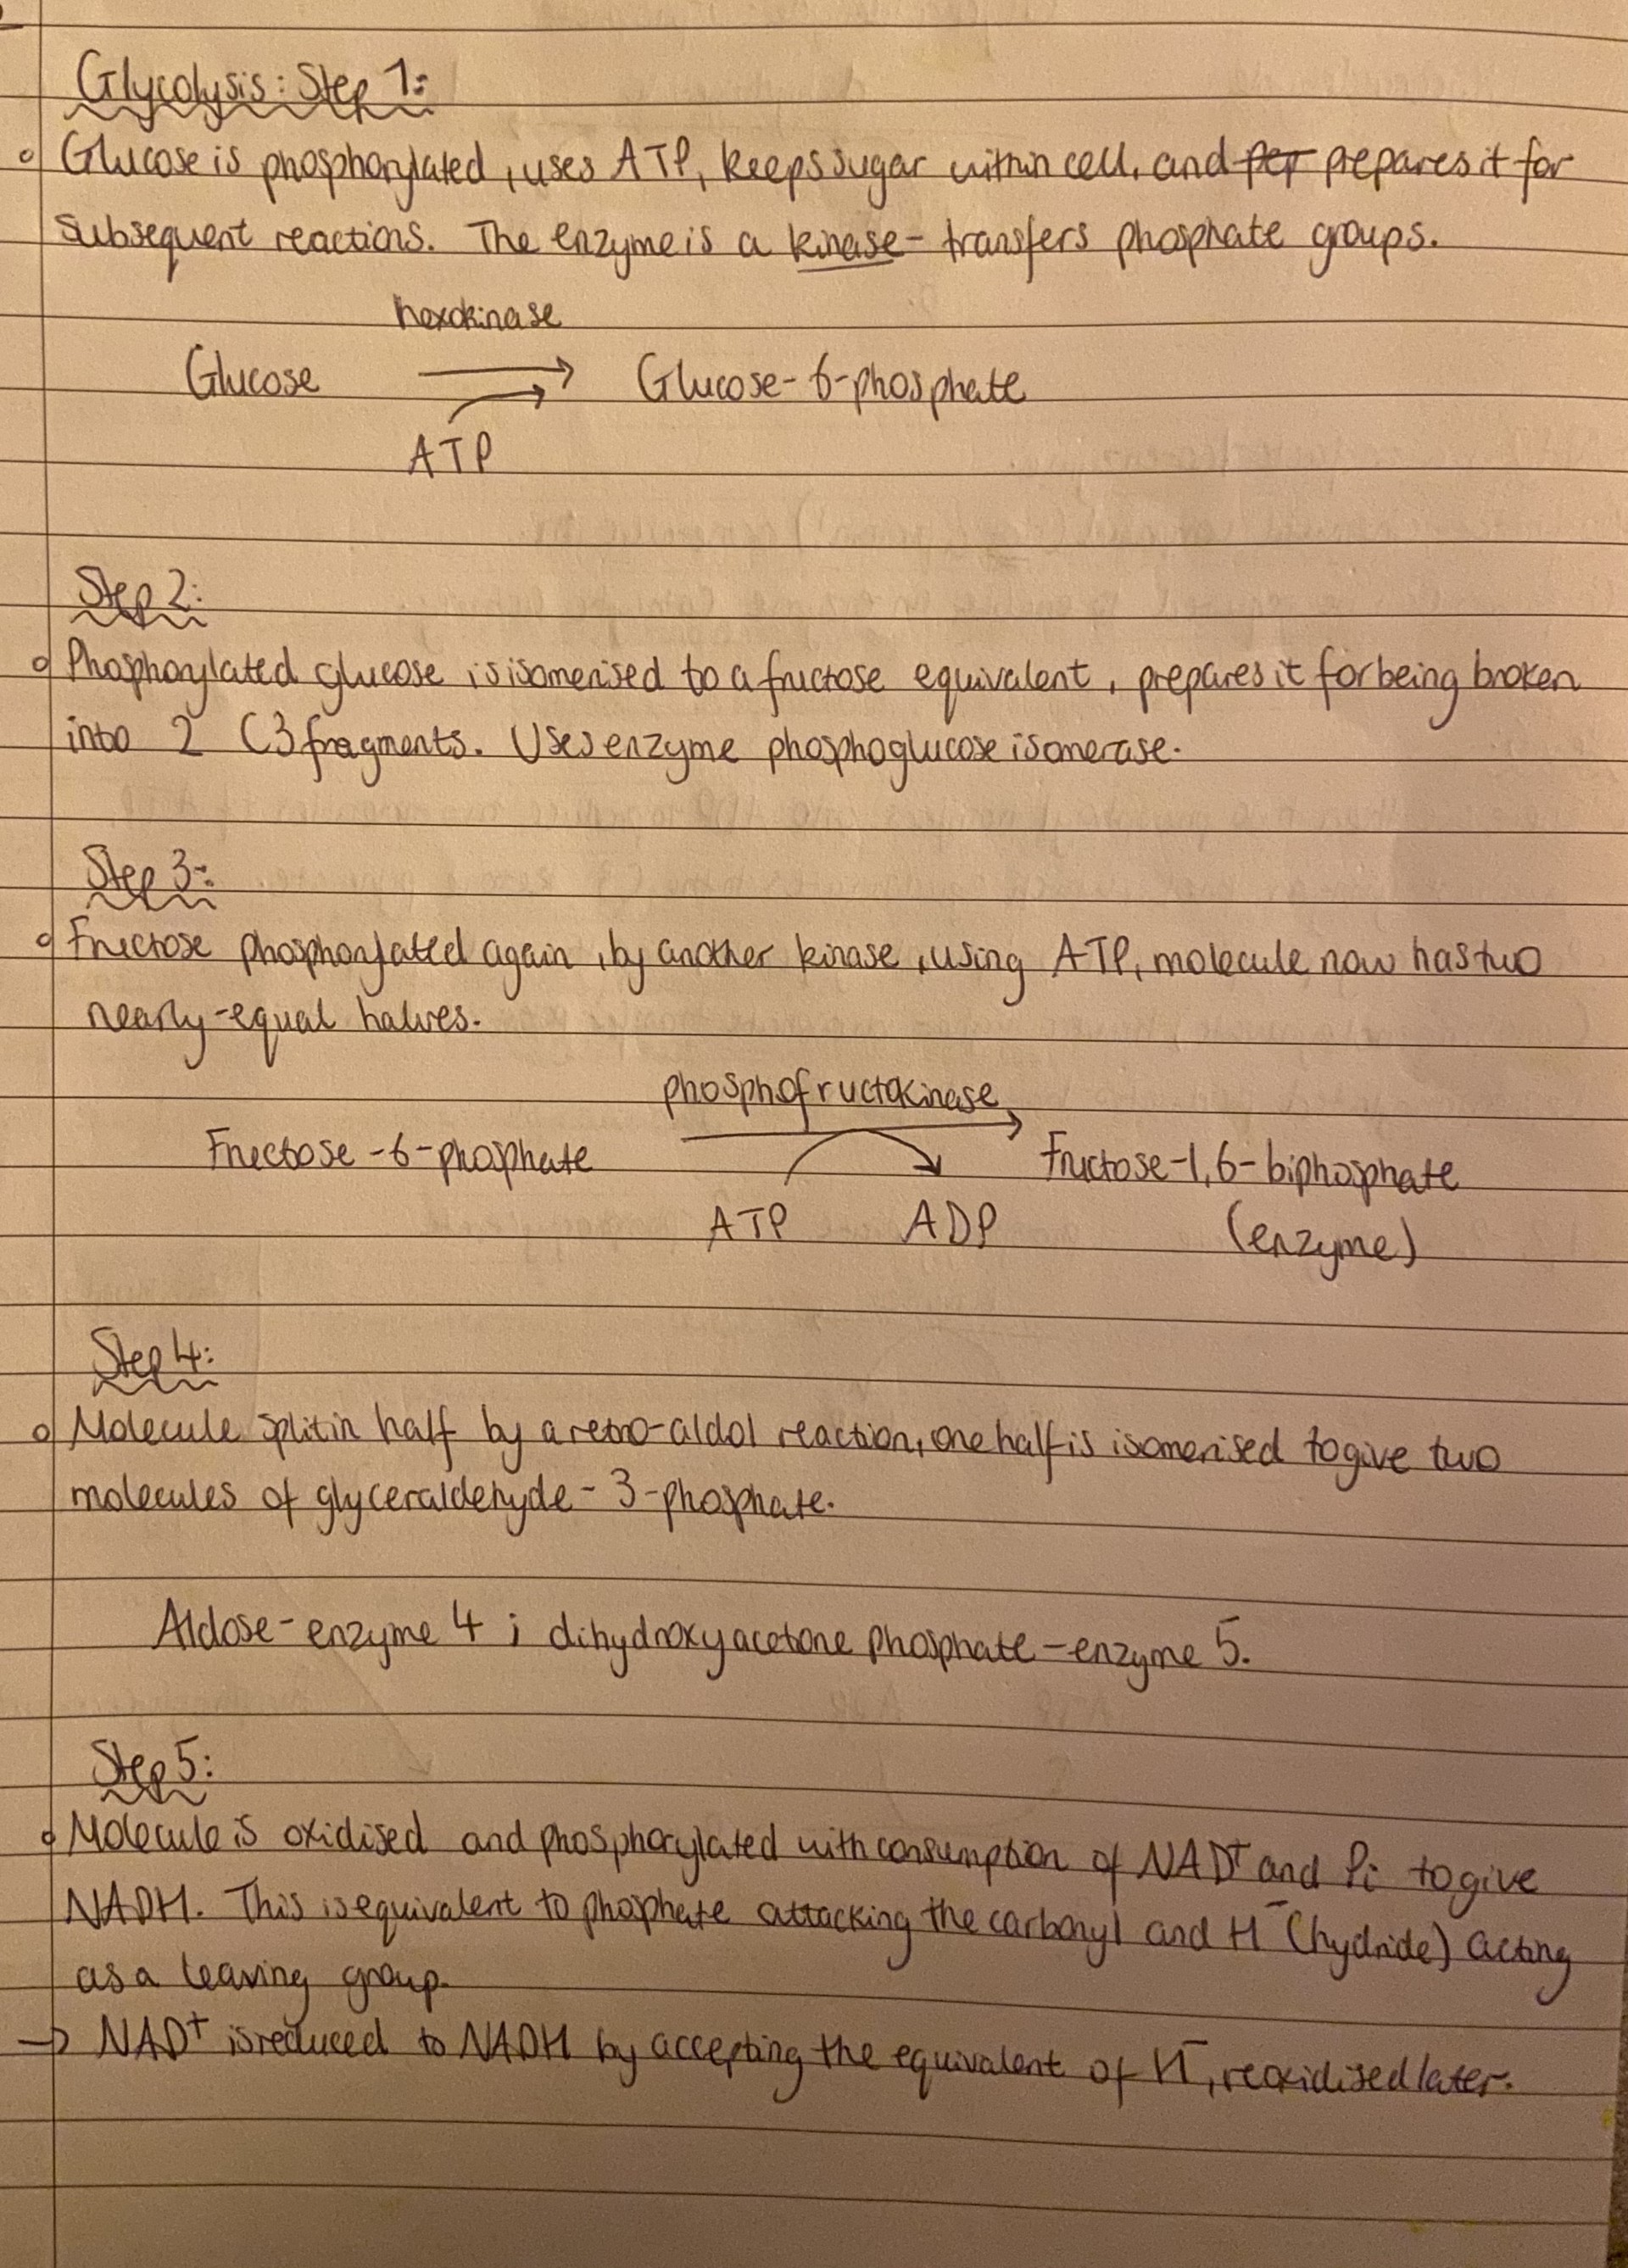 Glycolysis: Step 1:
Glucose is phosphorylated, uses ATP, keeps sugar within cell, and per prepares it for
subsequent reactions. The enzyme is a kinase - transfers phosphate groups.
hexokinase
Glucose → Glucose-6-phosphate
ATP
Step 2:
Phosphorylated glucose is isomerised to a fructose equivalent, prepares it for being broken
into 2 C3 fragments. Uses enzyme phosphoglucose isomerase.
Step 3:
Fructose phosphorylated again, by another kinase, using ATP, molecule now has two
nearly-equal halves.
phosphofructokinase
Fructose-6-phosphate → Fructose-1,6-biphosphate
ATP ADP (enzyme)
Step 4:
Molecule split in half by a retro-aldol reaction, one half is isomerised to give two
molecules of glyceraldehyde-3-phosphate.
Aldose-enzyme 4 ; dihydroxyacetone phosphate-enzyme 5.
Step 5:
Molecule is oxidised and phosphorylated with consumption of NAD⁺ and Pi to give
NADH. This is equivalent to phosphate attacking the carbonyl and H⁻ (hydride) acting
as a leaving group.
→ NAD⁺ is reduced to NADH by accepting the equivalent of H⁻, reoxidised later.